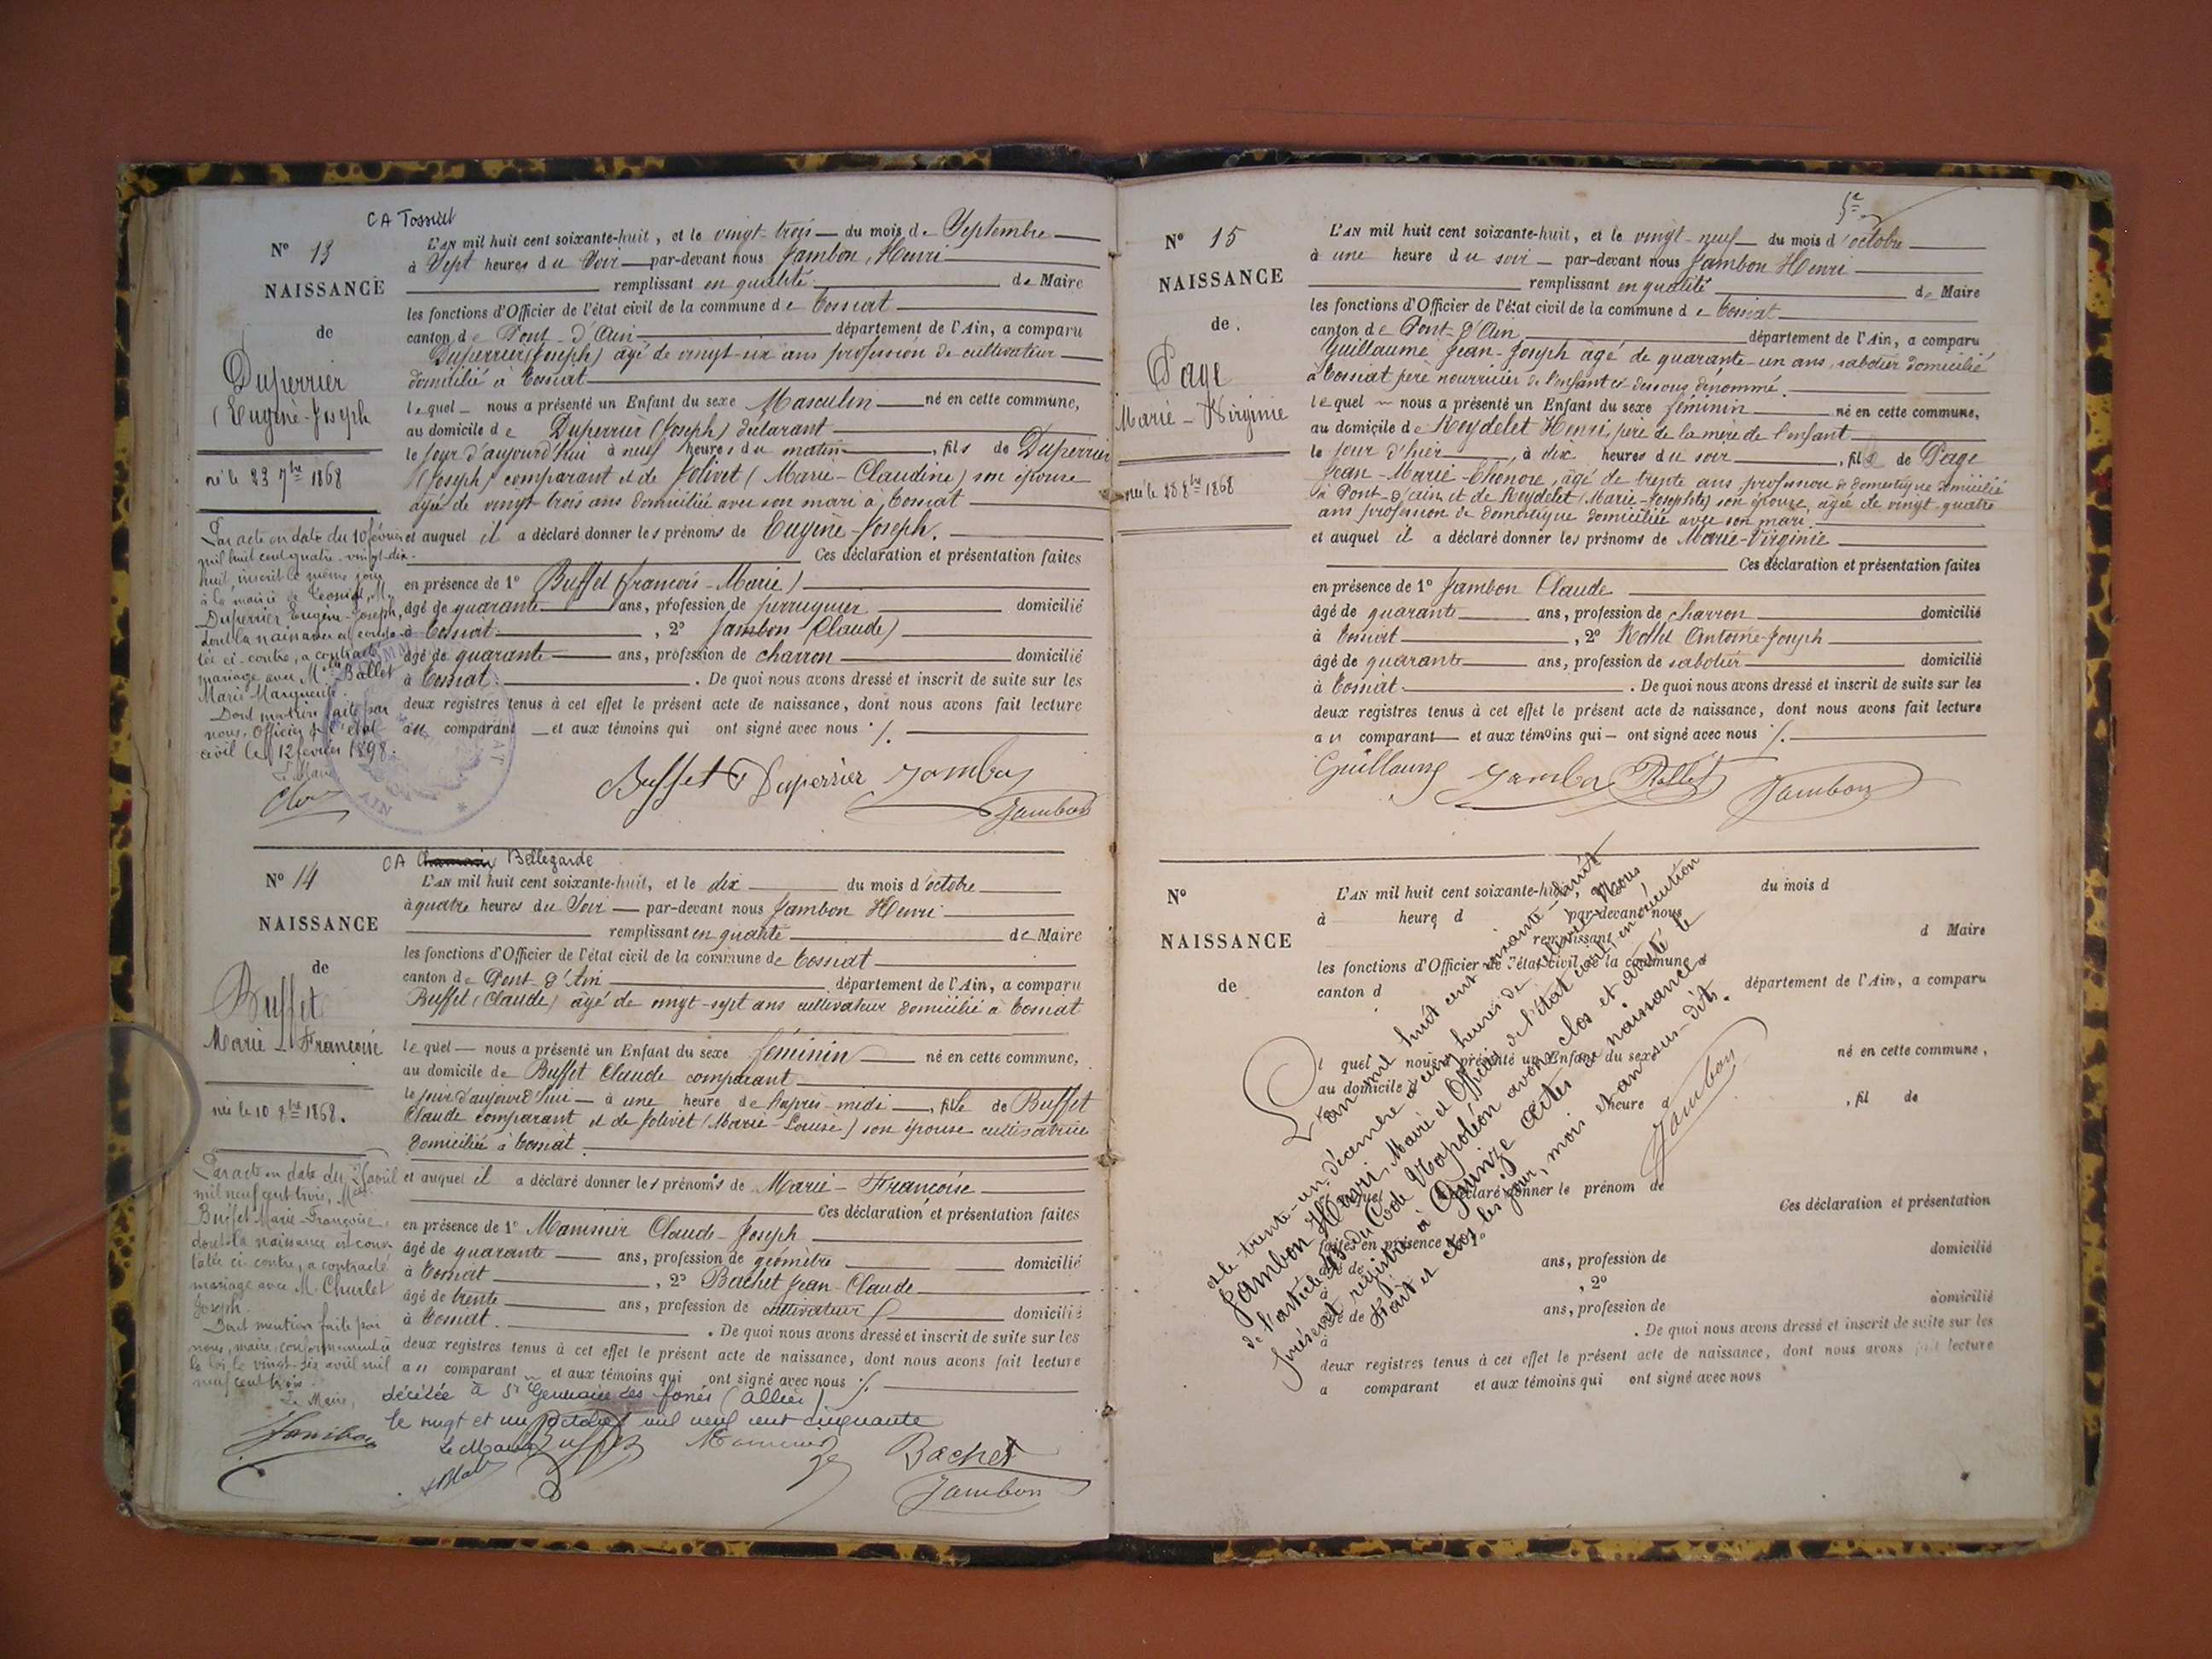 CA Tossiat
N° 13
NAISSANCE
de
Duperrier
(Eugène-Joseph
né le 23 7bre 1868
L'AN mil huit cent soixante-huit, et le vingt-trois du mois de Septembre
à Sept heures du Soir par-devant nous Jambon, Henri
remplissant en qualité de Maire
les fonctions d'Officier de l'état civil de la commune de Tossiat
canton de Pont-d'Ain département de l'Ain, a comparu
Duperrier (Joseph) agé de vingt-six ans profession de cultivateur
domicilié à Tossiat
lequel nous a présenté un Enfant du sexe Masculin né en cette commune,
au domicile de Duperrier (Joseph) déclarant
le jour d'aujourd'hui à neuf heures du matin, fils de Duperrier
(Joseph) comparant et de Jolivet (Marie-Claudine) son épouse
agée de vingt-trois ans domiciliée avec son mari à Tossiat
et auquel il a déclaré donner les prénoms de Eugène-Joseph.
Ces déclaration et présentation faites
en présence de 1° Buffet (François-Marie)
âgé de quarante ans, profession de perruquier domicilié
à Tossiat, 2° Jambon (Claude)
âgé de quarante ans, profession de charron domicilié
à Tossiat. De quoi nous avons dressé et inscrit de suite sur les
deux registres tenus à cet effet le présent acte de naissance, dont nous avons fait lecture
au comparant et aux témoins qui ont signé avec nous ./.
Buffet Duperrier Jambon
Jambon
Par acte en date du 10 février
mil huit cent quatre-vingt-dix-
huit, inscrit le même jour
à la mairie de Tossiat, M.
Duperrier Eugène-Joseph,
dont la naissance est consta-
tée ci-contre, a contracté
mariage avec Mlle Ballet
Marie-Marguerite.
Dont mention faite par
nous, Officier de l'état
civil le 12 février 1898.
Le Maire
AIN
CA Bellegarde
N° 14
NAISSANCE
de
Buffet
Marie-Françoise
née le 10 8bre 1868.
L'AN mil huit cent soixante-huit, et le dix du mois d'octobre
à quatre heures du Soir par-devant nous Jambon Henri
remplissant en qualité de Maire
les fonctions d'Officier de l'état civil de la commune de Tossiat
canton de Pont-d'Ain département de l'Ain, a comparu
Buffet (Claude) agé de vingt-sept ans cultivateur domicilié à Tossiat
lequel nous a présenté un Enfant du sexe féminin né en cette commune,
au domicile de Buffet Claude comparant
le jour d'aujourd'hui à une heure de l'après-midi, fille de Buffet
Claude comparant et de Jolivet (Marie-Louise) son épouse cultivatrice
domiciliée à Tossiat.
et auquel il a déclaré donner les prénoms de Marie-Françoise
Ces déclaration et présentation faites
en présence de 1° Manissier Claude-Joseph
âgé de quarante ans, profession de géomètre domicilié
à Tossiat, 2° Bachet Jean-Claude
âgé de trente ans, profession de cultivateur domicilié
à Tossiat. De quoi nous avons dressé et inscrit de suite sur les
deux registres tenus à cet effet le présent acte de naissance, dont nous avons fait lecture
au comparant et aux témoins qui ont signé avec nous ./.
décédée à St Germain des fossés (Allier)
le vingt et un octobre mil neuf cent cinquante
Le Maire Buffet Bachet
Jambon
Par acte en date du 25 avril
mil neuf cent trois, Melle
Buffet Marie-Françoise,
dont la naissance est cons-
tatée ci-contre, a contracté
mariage avec M. Churlet
Joseph.
Dont mention faite par
nous, maire, conformément à
la loi, le vingt-six avril mil
neuf cent trois.
Le Maire,
Jambon
N° 15
NAISSANCE
de.
Page
Marie-Virginie
née le 28 8bre 1868
L'AN mil huit cent soixante-huit, et le vingt-neuf du mois d'octobre
à une heure du soir par-devant nous Jambon Henri
remplissant en qualité de Maire
les fonctions d'Officier de l'état civil de la commune de Tossiat
canton de Pont-d'Ain département de l'Ain, a comparu
Guillaume Jean-Joseph agé de quarante-un ans, sabotier domicilié
à Tossiat père nourricier de l'enfant ci-dessous dénommé.
lequel nous a présenté un Enfant du sexe féminin né en cette commune,
au domicile de Reydelet Henri, père de la mère de l'enfant
le jour d'hier, à dix heures du soir, fille de Page
Jean-Marie, agé de trente ans profession de domestique domicilié
à Pont-d'ain et de Reydelet (Marie-Josephte) son épouse, agée de vingt-quatre
ans profession de domestique domiciliée avec son mari.
et auquel il a déclaré donner les prénoms de Marie-Virginie
Ces déclaration et présentation faites
en présence de 1° Jambon Claude
âgé de quarante ans, profession de charron domicilié
à Tossiat, 2° Rollet Antoine-Joseph
âgé de quarante ans, profession de sabotier domicilié
à Tossiat. De quoi nous avons dressé et inscrit de suite sur les
deux registres tenus à cet effet le présent acte de naissance, dont nous avons fait lecture
au comparant et aux témoins qui ont signé avec nous ./.
Guillaume Jambon Rollet Jambon
N°
NAISSANCE
de
L'AN mil huit cent soixante-huit, du mois d
à heure d par-devant nous
remplissant d Maire
les fonctions d'Officier de l'état civil de la commune d
canton d département de l'Ain, a comparu
l quel nous a présenté un Enfant du sexe né en cette commune,
au domicile d
heure d, fil de
déclaré donner le prénom de
Ces déclaration et présentation
faites en présence de 1°
âgé de ans, profession de domicilié
à, 2°
âgé de ans, profession de domicilié
à. De quoi nous avons dressé et inscrit de suite sur les
deux registres tenus à cet effet le présent acte de naissance, dont nous avons fait lecture
a comparant et aux témoins qui ont signé avec nous
L'an mil huit cent soixante-huit
et le trente-un décembre à cinq heures de relevée, Nous
Jambon Henri, Maire et Officier de l'état civil, en exécution
de l'article 43 du Code Napoléon avons clos et arrêté le
présent registre à Quinze actes de naissance.
Fait et clos les jour, mois et an sus-dits.
Jambon